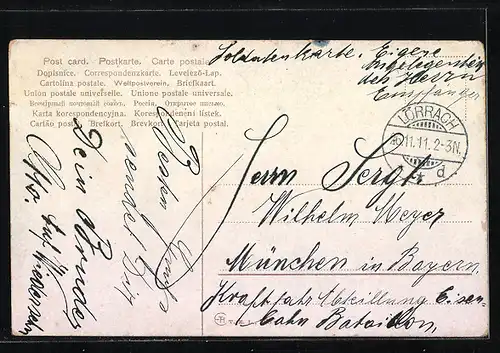 Post card. Postkarte. Carte postale.
Dopisnice. Correspondenzkarte. Levelező-Lap.
Cartolina postale. Weltpostverein. Briefkaart.
Union postale universelle. Unione postale universale.
Всемірный почтовый союзъ. Россія. Открытое письмо.
Karta korespondencyjna. Korespondenční lístek.
Cartão postal. Brefkort. Brevkort. Tarjeta postal.
Soldatenkarte. Eigene
Angelegenheit
des Herrn
Empfänger
LÖRRACH
11.11. 2-3N.
* d
Herrn Sergt.
Wilhelm Meyer
München in Bayern
Kraftfahr Abteillung Eisen-
bahn Bataillon,
Besten Gruß
sendet Dir
Dein Bruder
Otto. Auf Wiedersehn